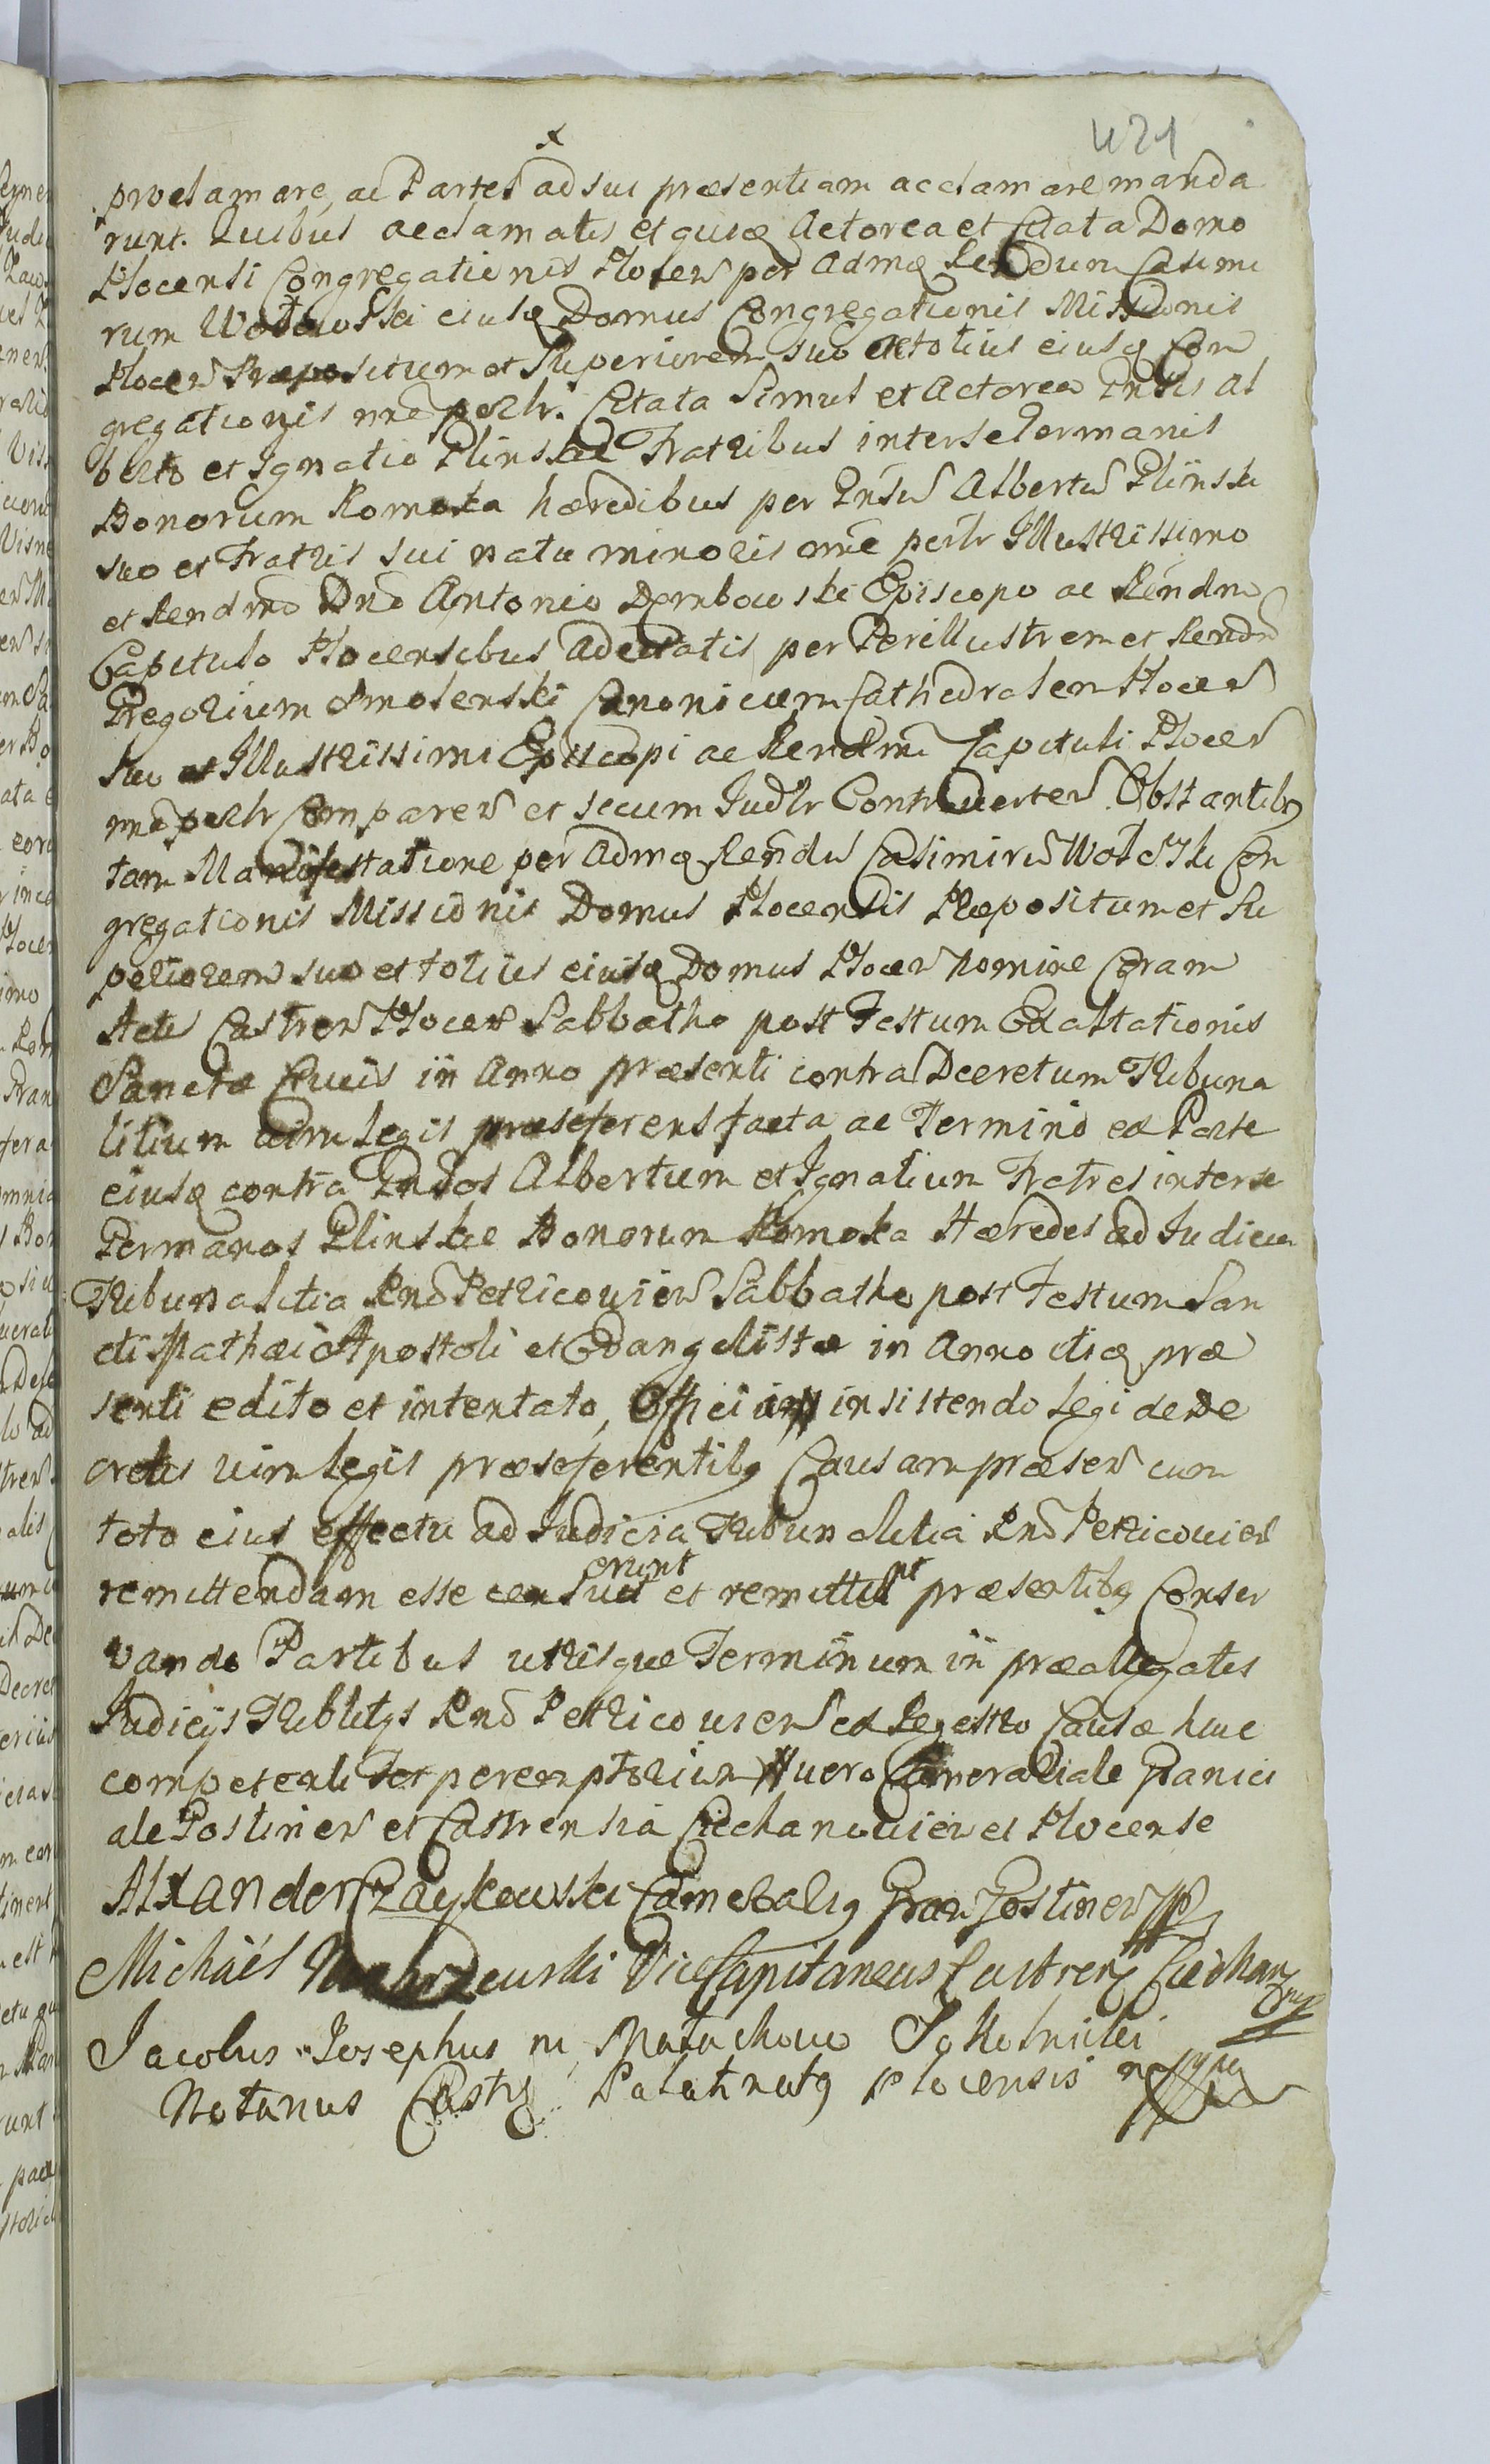 421
x
proclamare, ac Partes ad sui præsentiam acclamare manda
runt. Quibus acclamatis et quidē Actorea et Citata Domo
Plocensi Congregationis Plocen per Admo Rendum Casimi
rum Wołłowski eiusq Domus Congregationis Missionis
Plocen Præpositum et Superiorem suo et totius eiusq Con
gregationis nne pstr. Citata simul et Actorea Gnsis Al
berto et Ignatio Plinskie Fratribus inter se Germanis
Bonorum Romoka hæredibus per Gnsū Albertū Pliński
suo et Fratris sui natu minoris nne pstr Illustrissimo
et Rendmo Dno Antonio Dembowski Episcopo ac Rendmo
Capitulo Plocensibus Adcitatis per Perillustrem et Rendū
Gregorium Smolenski Canonicum Cathedralem Plocen
suo et Illustrissimi Episcopi ac Rendmi Capituli Plocen
nne pstr Comparen et secum Judlr Controverten. Obstantibq
tam Manifestatione per Admq Rendū Casimirū Wołłoski Con
gregationis Missionis Domus Plocensis Præpositum et Su
periorem suo et totius eiusq Domus Plocen nomine Coram
Actis Castren Plocen Sabbatho post Festum Exaltationis
Sanctæ Crucis in Anno præsenti contra Decretum Tribuna
litium vim legis præseferens facta ac Termino ex Parte
eiusq contra Gnsos Albertum et Ignatium Fratres inter se
Germanos Plinskie Bonorum Romoka Hæredes ad Judicia
Tribunalitia Rnd Petricovien Sabbatho post Festum San
cti Mathæi Apostoli et Evangelistæ in Anno itidē præ
senti edito et intentato, Officium insistendo Legi de De
cretis vim legis præseferentibq Causam præsen cum
toto eius effectu ad Judicia Tribunalitia Rnd Petricovien
remittendam esse censuerunt et remittunt præsentibq Conser
vando Partibus utrisque Terminum in præallegatis
Judicijs Tribltijs Rnd Petricovien ex Regestro Causæ huic
competenti Ter peremptorium vero Cameraliale Granici
ale Gostinen et Castrensia Ciechanovien et Plocense
Alxander Czaykowski Cameralis Gran Gostinen mp
Michäel Vice Capitaneus Castren Ciechan mp
Jacobus Josephus in Małachowo Sokolnicki
Notarius Castr Palatinatq Plocensis mp